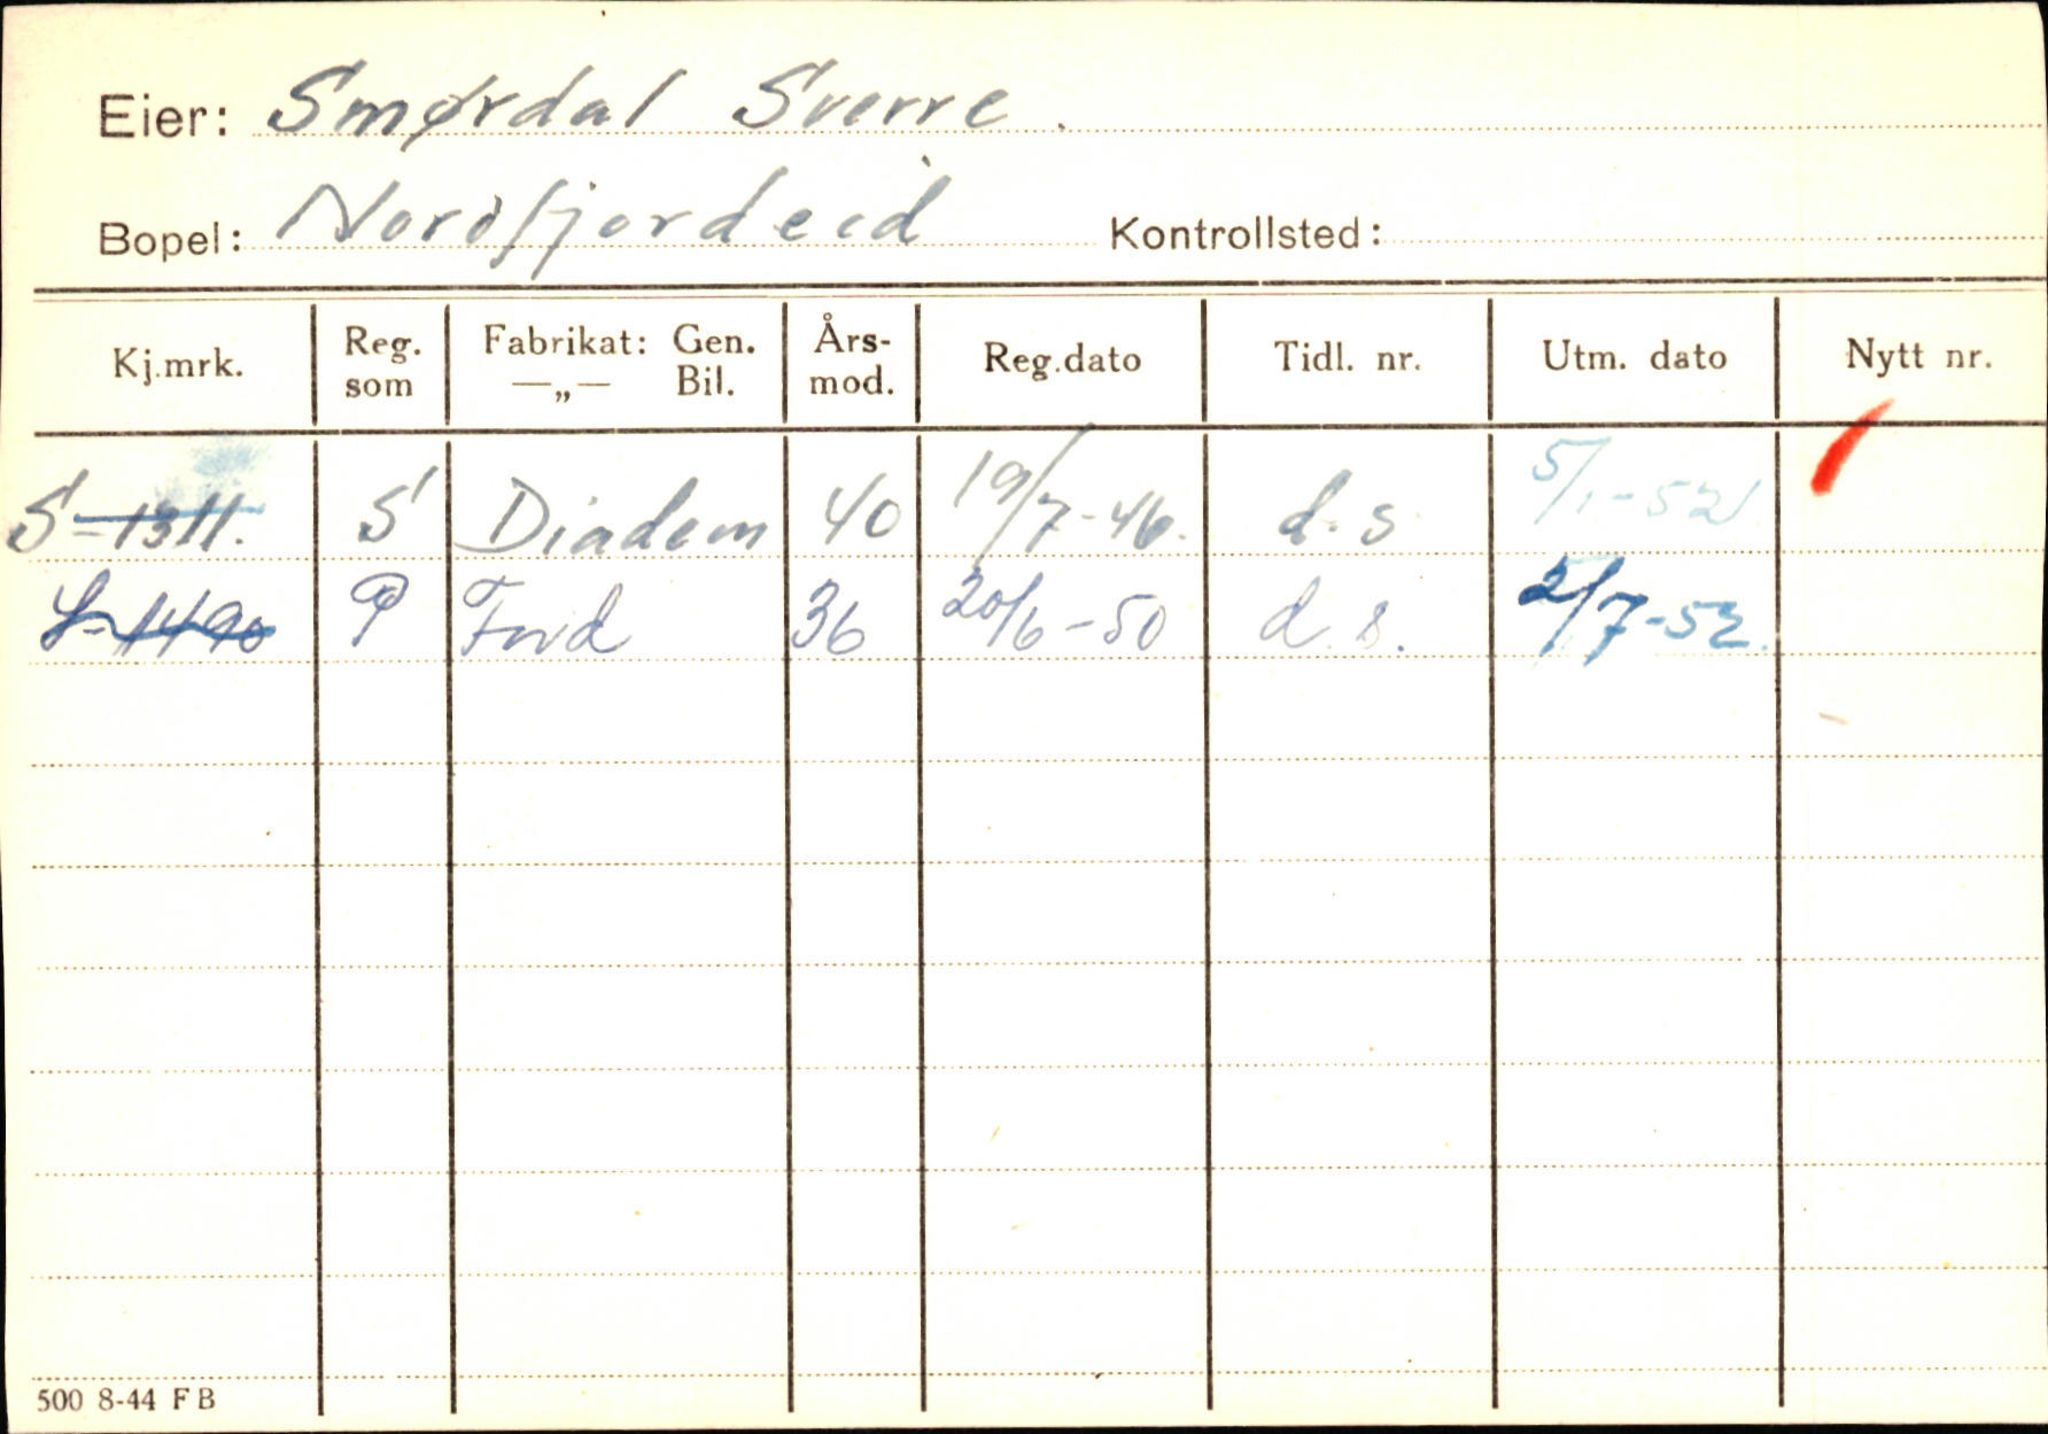 Eier: Smørdal Sverre.
Bopel: Nordfjordeid Kontrollsted:
Kj.mrk. Reg. som Fabrikat: Gen. —„— Bil. Års-mod. Reg.dato Tidl. nr. Utm. dato Nytt nr.
S-1311. S Diadem 40 19/7-46. d.s 5/1-52
S-1490 P Ford 36 20/6-50 d.s. 2/7-52.
500 8-44 FB